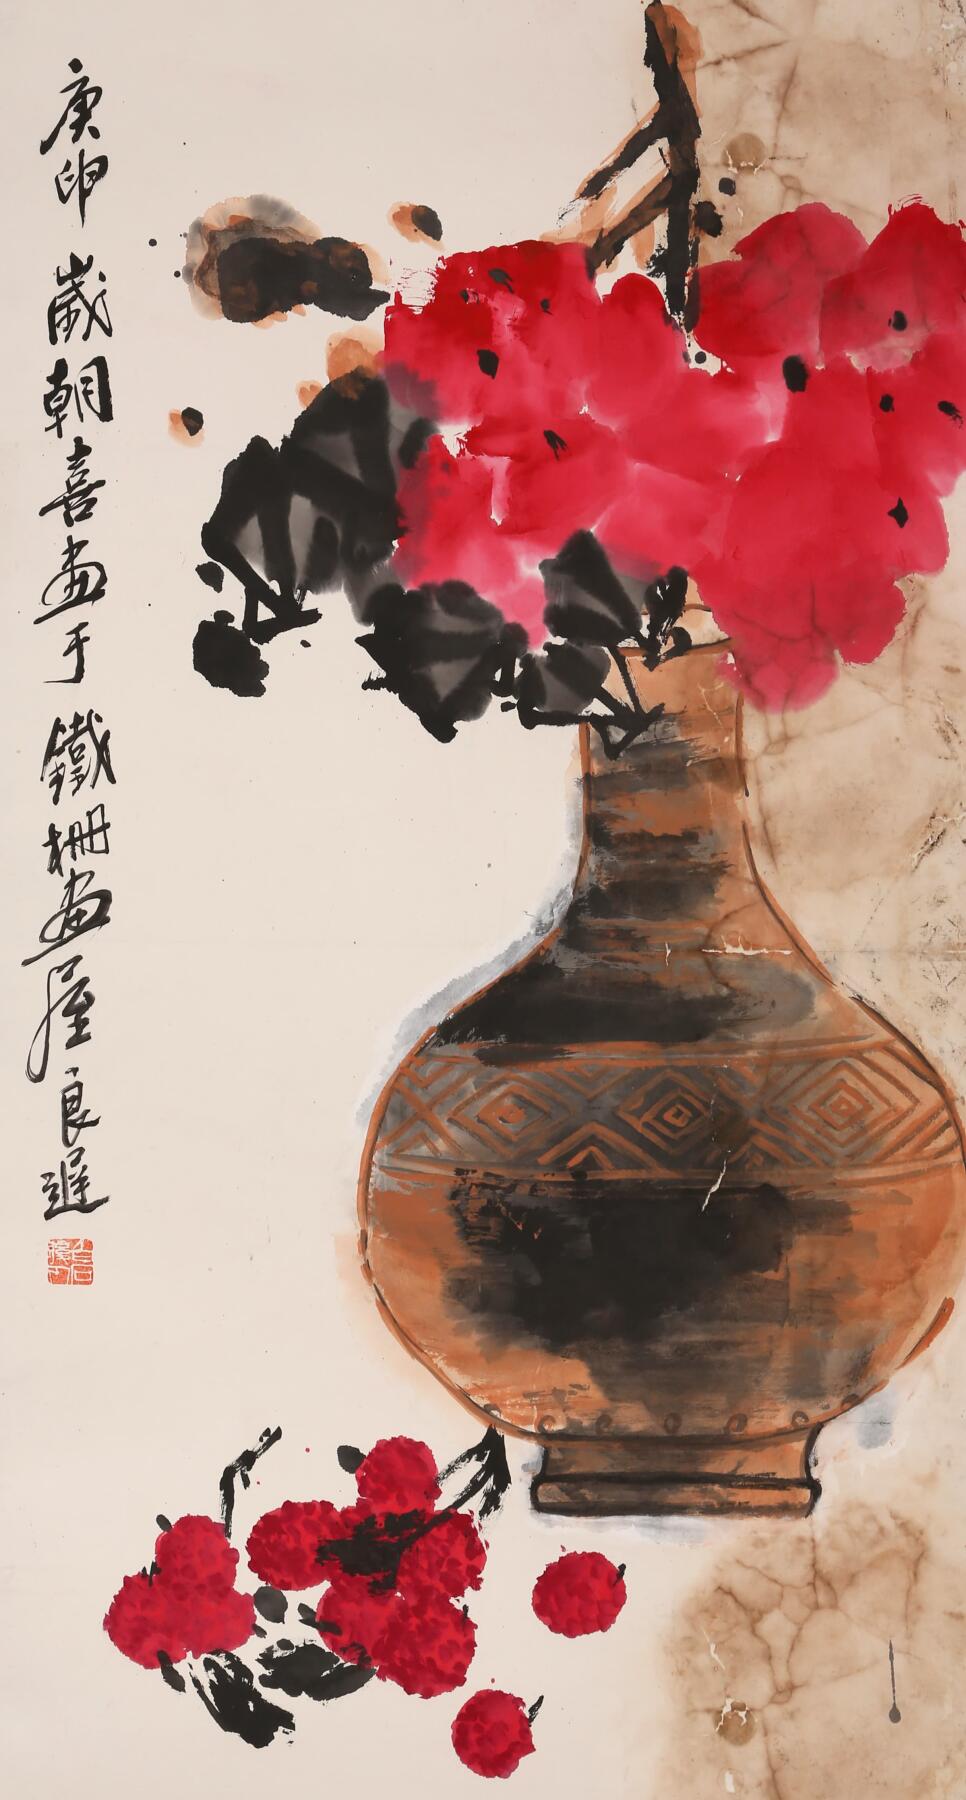 庚申歲朝喜畫于鐵柵畫屋良遲